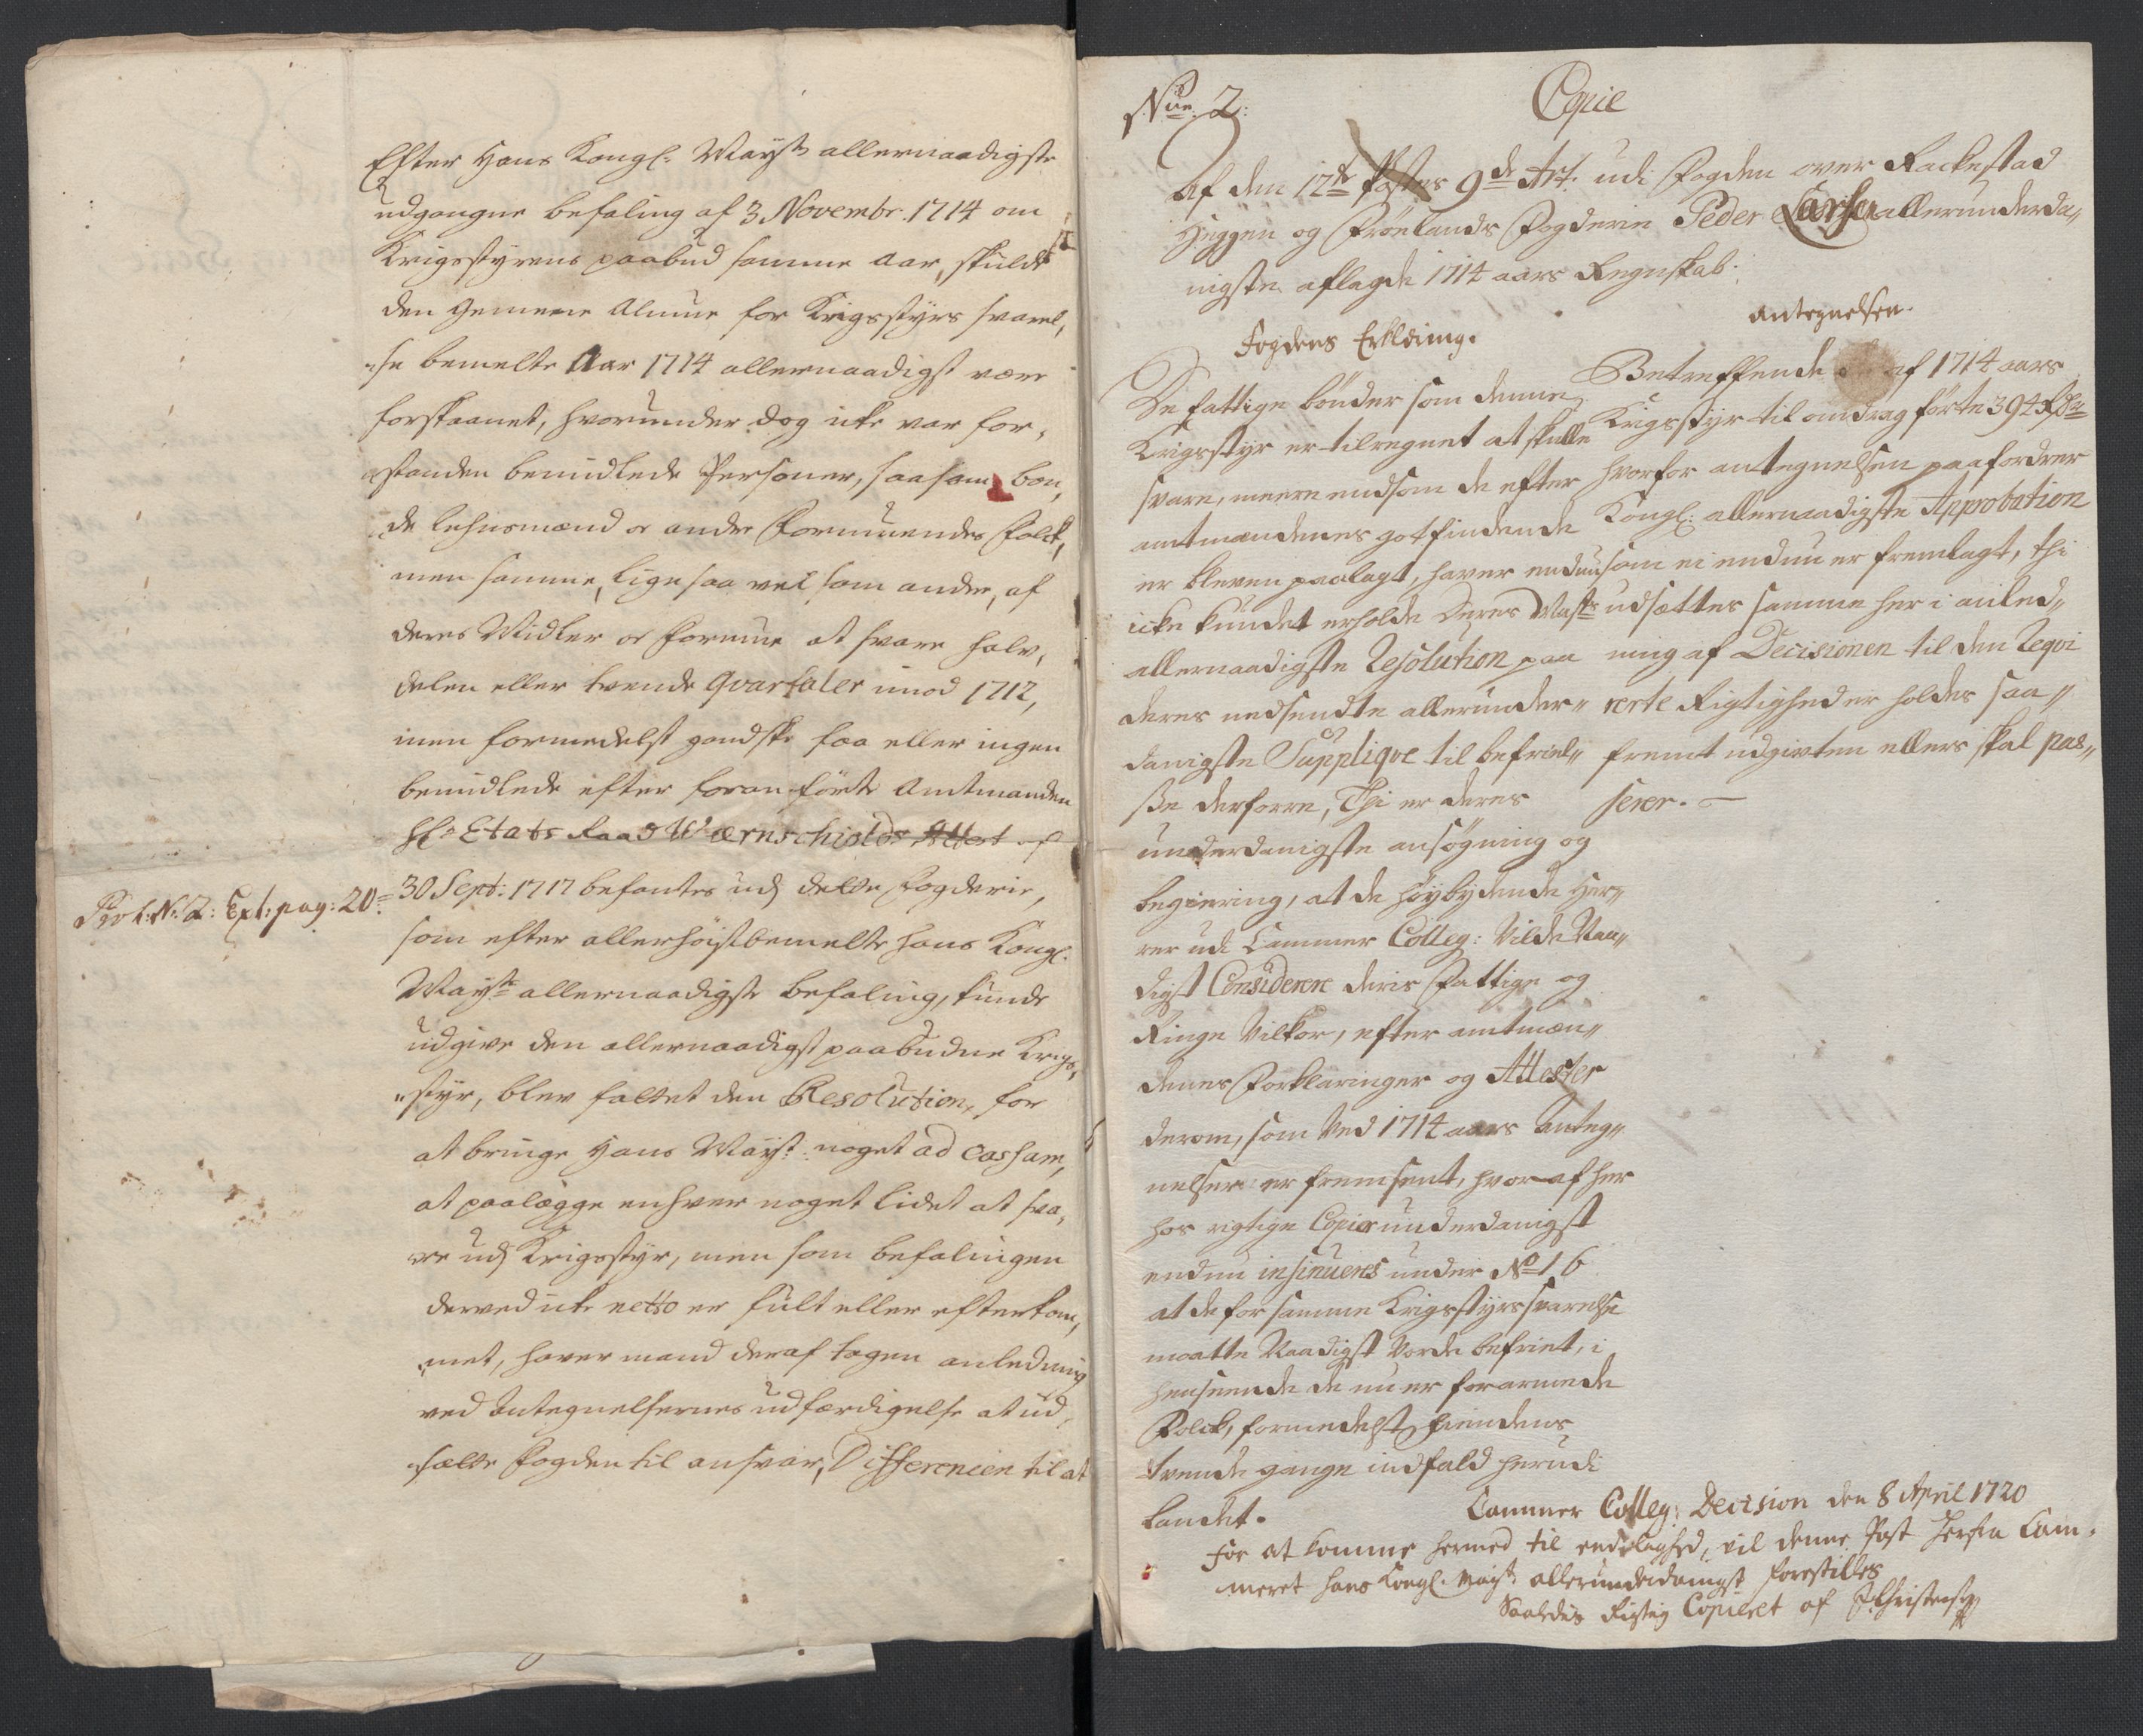 Efter Hans Kongl: Mayst: allernaadigste
udgangne befaling af 3 Novembr. 1714 om
Krigsstyrens paabud samme Aar, skulde
den gemeene Almue for Krigsstyrs svarel,
se bemelte Aar 1714 allernaadigst være
forskaanet, hvorunder dog icke var for,
standen bemidlede Personer, saasom bon,
de Lehnsmænd og andre formuendes Folck,
men samme, lige saa vel som andre, af
deres Midler og formue at svare halv,
delen eller tvende Qvartaler imod 1712,
men formedelst gandske faa eller ingen
bemidlede efter foranførte Amtmanden
Hr Etats Raad Wærnschiolds Attest af
Prot: No: 2: Ext: pag: 20= 30 Sept: 1717 befantes udj dette Fogderie,
som efter allerhøistbemelte Hans Kongl.
Mayst: allernaadigste befaling, kunde
udgive den allernaadigst paabudne Krigs,
styr, blev fattet den Resolution, for
at bringe Hans Mayst: noget ad cassam,
at paalegge enhver noget lidet at sva,
re udj Krigsstyr, men som befalingen
derved icke netto er fult eller efterkom,
met, haver mand deraf tagen anledning
ved Antegnelsernes udfærdigelse at ud,
sætte Fogden til ansvar, Differencen til at
No. 2: Copie
Af den 12te Postes 9de Art: udi Fogden over Rackestad
Heggen og Frølands Fogderie Peder Larsen allerunderda,,
nigste aflagde 1714 aars Regnskab:
Fogdens Erklæring.
De fattige bønder som denne
Krigsstyr er tilregnet at skulle
svare, meere end som de efter
amtmandenes gotfindende
er bleven paalagt, haver endnu
icke kundet erholde Deres Mayts
allernaadigste Resolution paa
deres nedsendte allerunder,,
danigste Supplique til befriel,,
sse derforre, Thi er deres
underdanigste ansøgning og
begiering, at de høybydende Her,,
rer udi Cammer Colleg: Vilde Naa,,
digst Considerere deris Fattige og
Ringe Vilkor, efter amtmæn,,
denes Forklaringer og Attester
derom, som Ved 1714 aars Anteg,,
nelser er fremsent, hvoraf her
hos rigtige Copier underdanigst
endnu insinueres under No 16
at de for samme Krigsstyrs svarelse
maatte Naadigst Vorde befriet, i
henseende de nu er forarmede
Folck, formedelst fiendens
tvende gange indfald herudi
Landet.
Antegnelsen.
Betreffende de af 1714 aars
Krigsstyr til andrag førte 394 Rdr
hvorfor antegnelsen paafordrer
Kongl: allernaadigste Approbation
som ei endnu er fremlagt, thi
udsættes samme her i anled,,
ning af Decisionen til den Reqvi
rerte Rigtighed er holdes saa,,
fremt udgivten ellers skal pas,,
serer.
Cammer Colleg: Decision den 8 April 1720
For at komme hermed til endelighed, vil denne Post herfra Cam,
meret Hans Kongl. Mayst: allerunderdanigst forestilles
Saaledes Rigtig Copieret af P Christensen